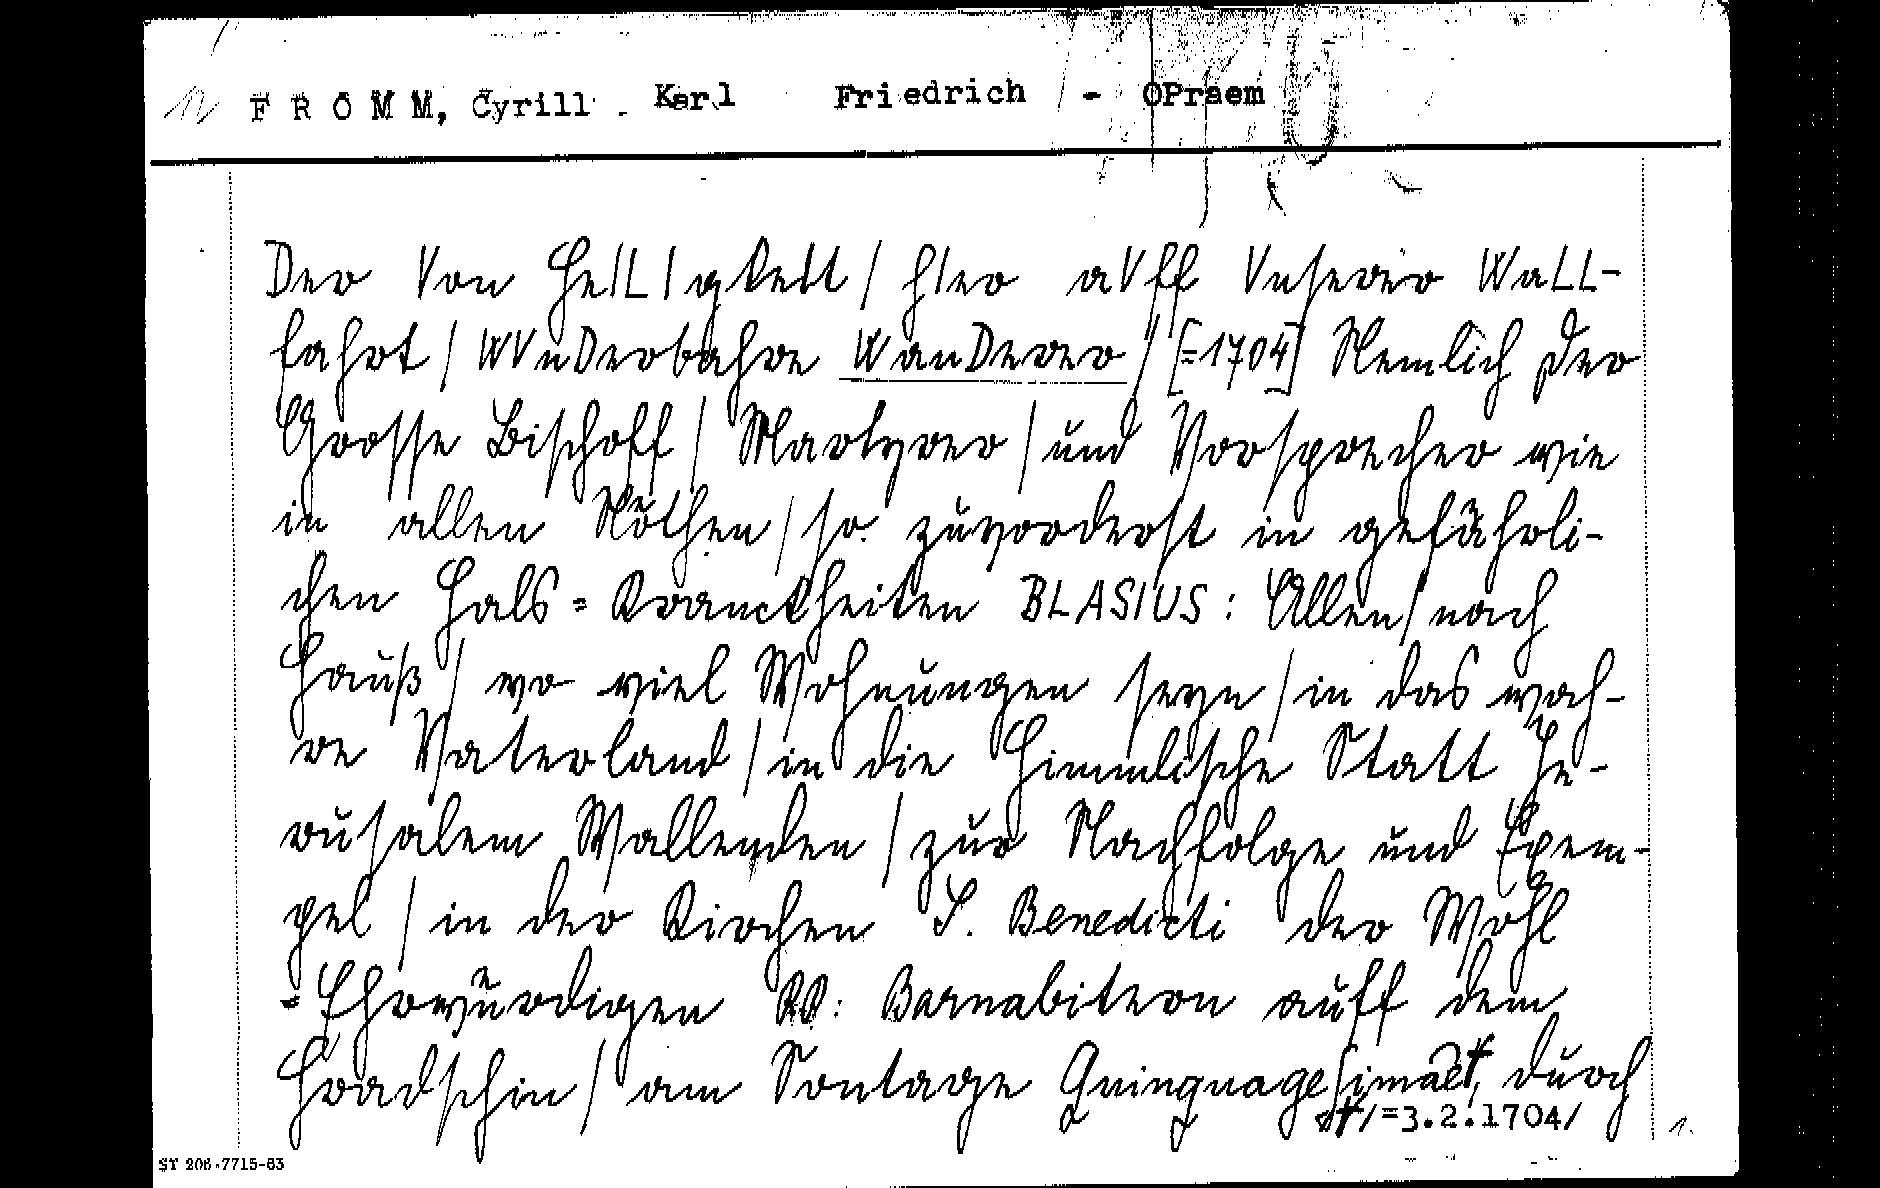 FROMM, Cyrill . Karl Friedrich - OPraem
Der Von HeILIgkeIt / hIer aVff Vnserer WaLL-
fahrt / WVnDerbahre WanDerer / [=1704] Nemlich der
Grosse Bischoff / Martyrer / und Vorsprecher wie
in allen Nöthen / so zuvorderst in gefährli-
chen Hals = Kranckheiten BLASIUS : Allen / nach
Hauß / wo viel Wohnungen seyn / in das wah-
re Vaterland / in die Himmlische Statt Je-
rusalem Wallenden / zur Nachfolge und Exem-
pel / in der Kirchen S. Benedicti der Wohl
= Ehrwuͤrdigen RR: Barnabitern auff dem
Hradschin / am Sontage Quinquagesimae+, durch
+/=3.2.1704/
1.
ST 206-7715-63